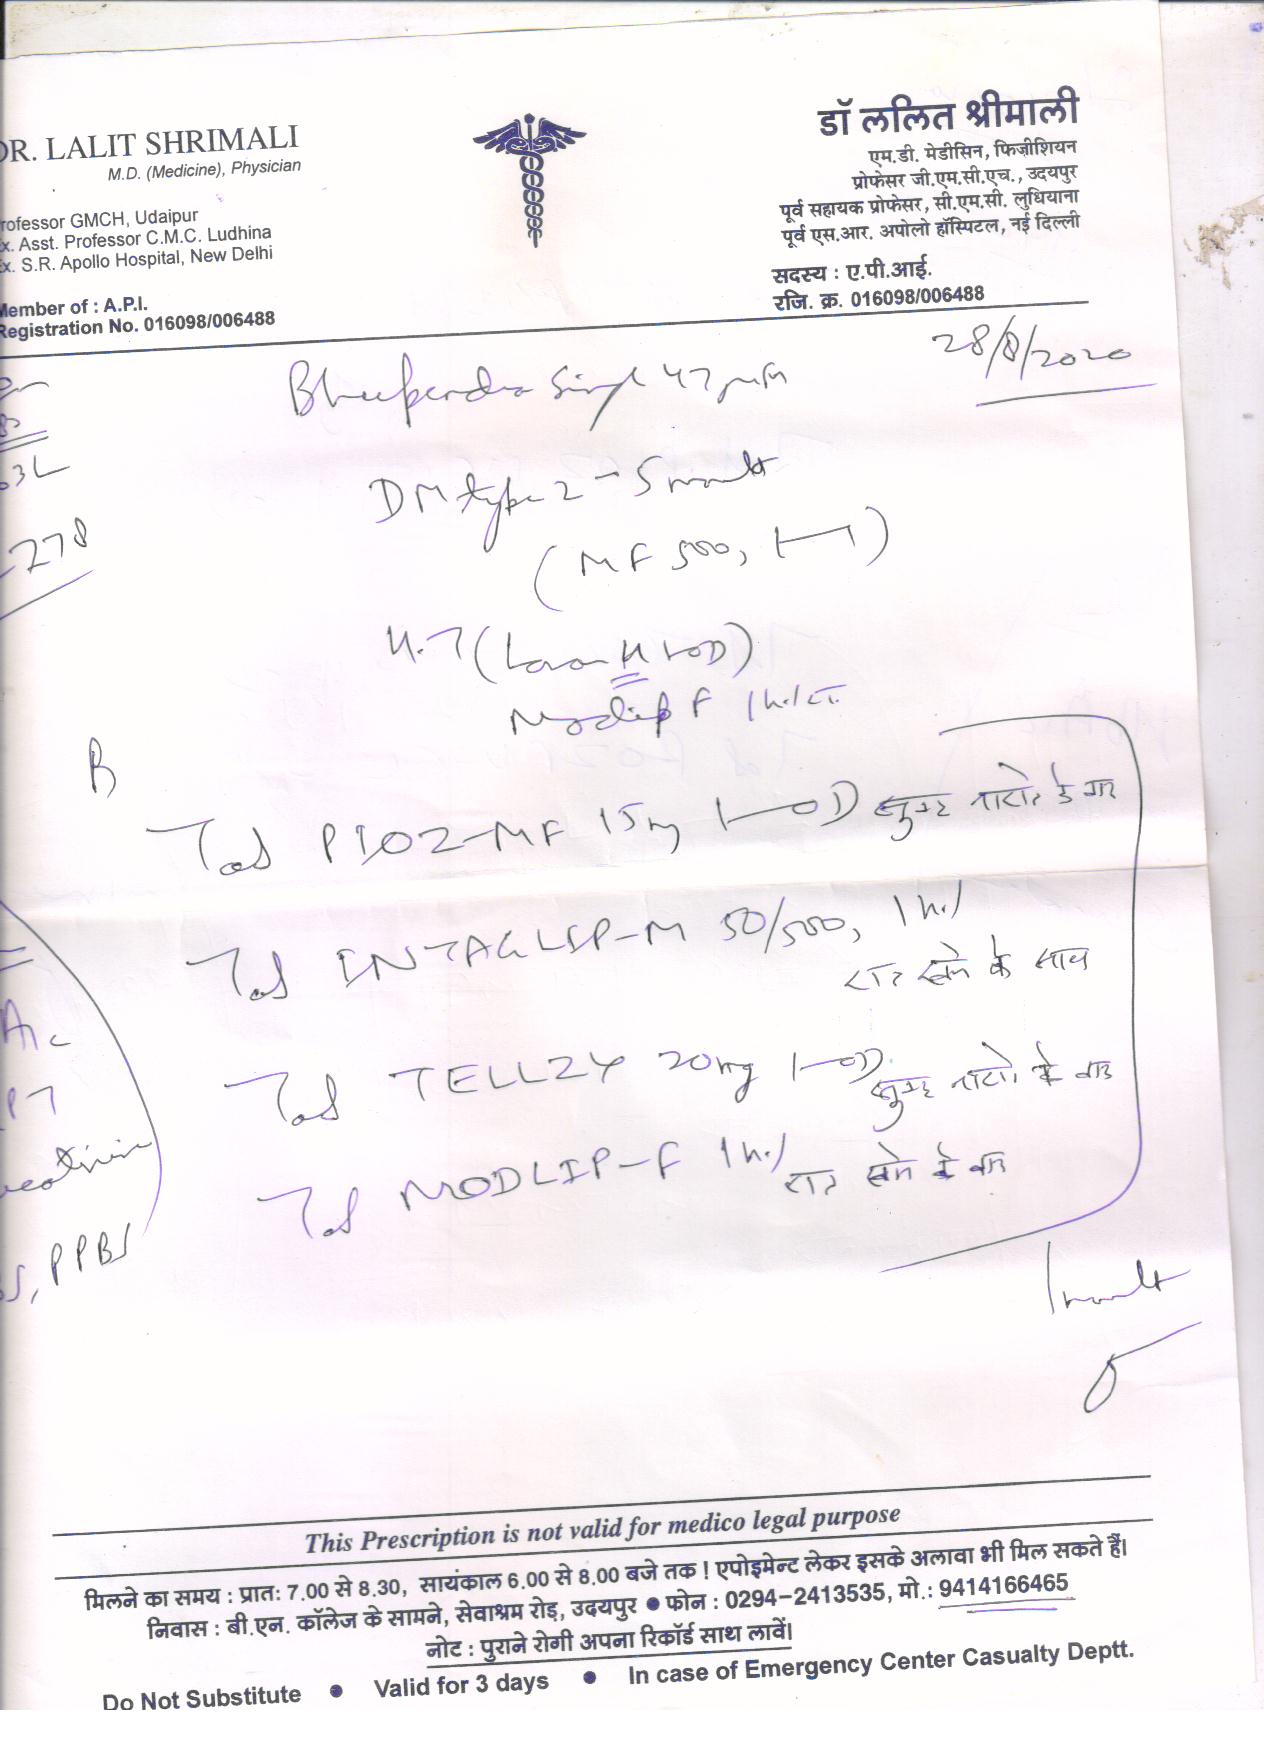 DR. LALIT SHRIMALI
M.D. (Medicine), Physician
rofessor GMCH, Udaipur
x. Asst. Professor C.M.C. Ludhina
x. S.R. Apollo Hospital, New Delhi
Member of : A.P.I.
Registration No. 016098/006488
डॉ ललित श्रीमाली
एम.डी. मेडीसिन, फिज़ीशियन
प्रोफेसर जी.एम.सी.एच., उदयपुर
पूर्व सहायक प्रोफेसर, सी.एम.सी. लुधियाना
पूर्व एस.आर. अपोलो हॉस्पिटल, नई दिल्ली
सदस्य : ए.पी.आई.
रजि. क्र. 016098/006488
28/8/2020
Bhupendra Singh 47
278
DM type 2 - 5 month
(MF 500, 1-1)
H.T (Losar H 1-OD)
Modlip F 1
R
Tab PIOZ-MF 15mg 1-OD सुबह नाश्ते के बाद
Tab INTAGLIP-M 50/500, 1
रात खाने के साथ
Tab TELLZY 20mg 1-OD सुबह नाश्ते के बाद
Tab MODLIP-F 1 रात खाने के बाद
A1c
PT
eatinin
S, PPBS
1 month
This Prescription is not valid for medico legal purpose
मिलने का समय : प्रातः 7.00 से 8.30, सायंकाल 6.00 से 8.00 बजे तक ! एपोइमेन्ट लेकर इसके अलावा भी मिल सकते हैं।
निवास : बी.एन. कॉलेज के सामने, सेवाश्रम रोड़, उदयपुर ● फोन : 0294-2413535, मो.: 9414166465
नोट : पुराने रोगी अपना रिकॉर्ड साथ लावें।
Do Not Substitute ● Valid for 3 days ● In case of Emergency Center Casualty Deptt.